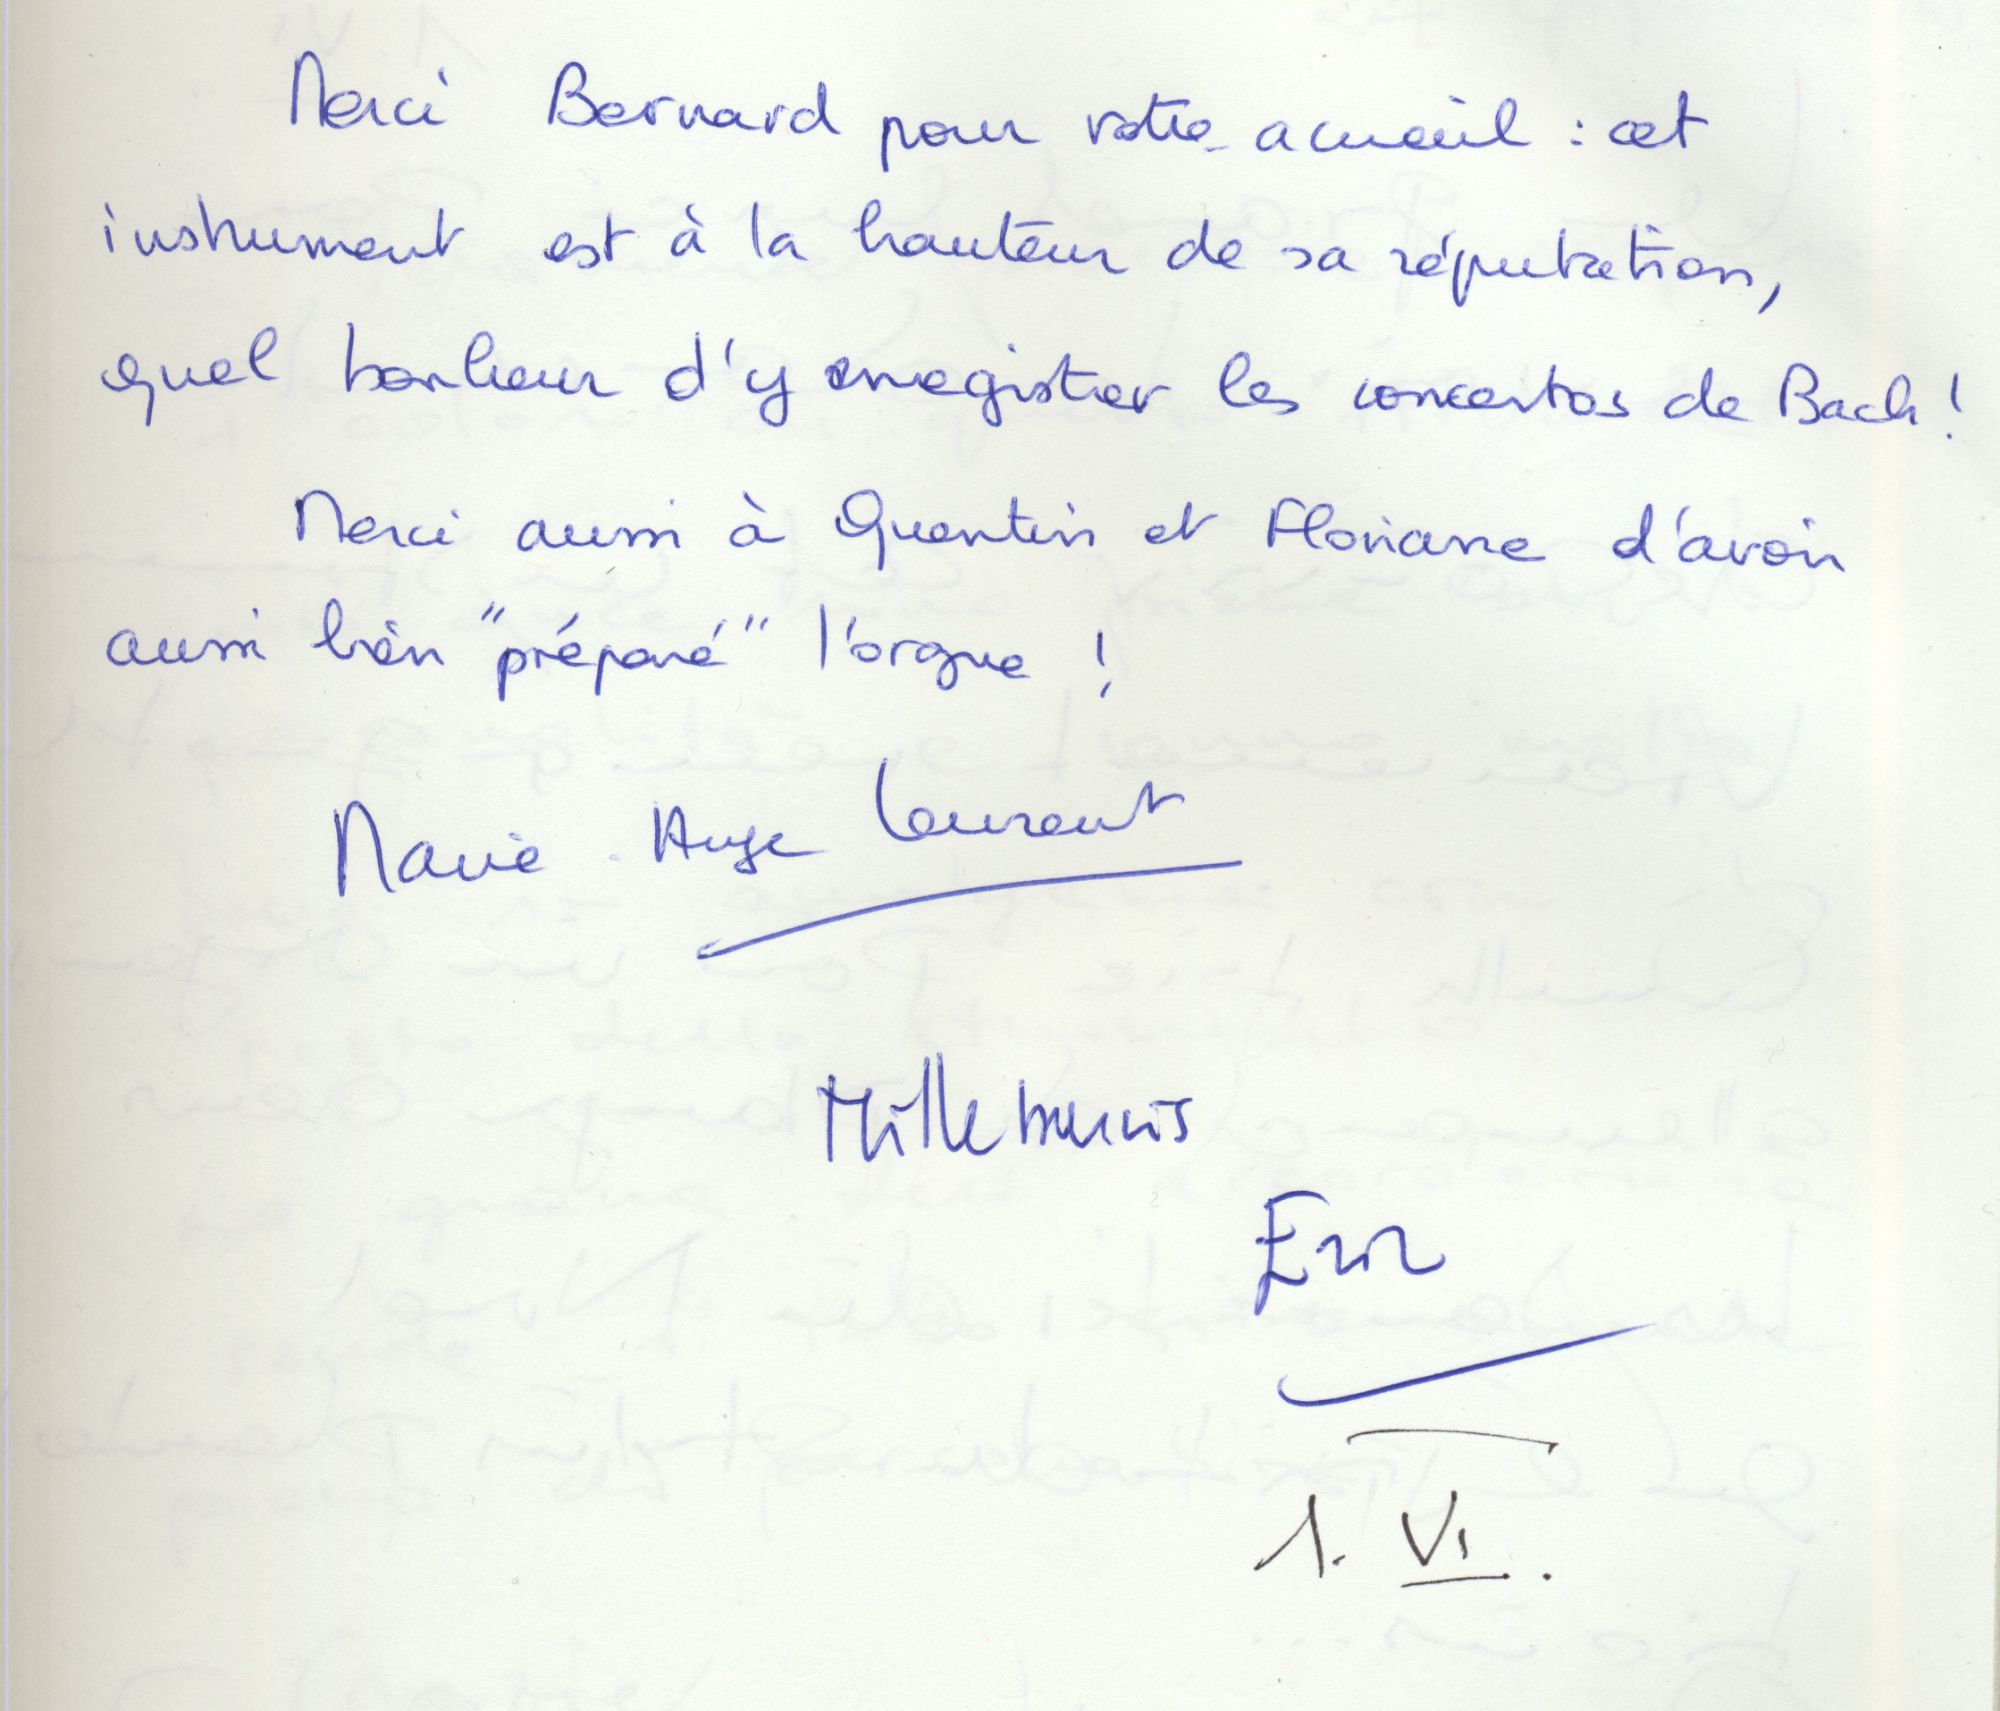 Merci Bernard pour votre accueil : cet
instrument est à la hauteur de sa réputation,
quel bonheur d'y enregistrer les concertos de Bach !
Merci aussi à Quentin et Floriane d'avoir
aussi bien "préparé" l'orgue !
Marie-Ange Laurent
Mille mercis
Eric
1. VI.